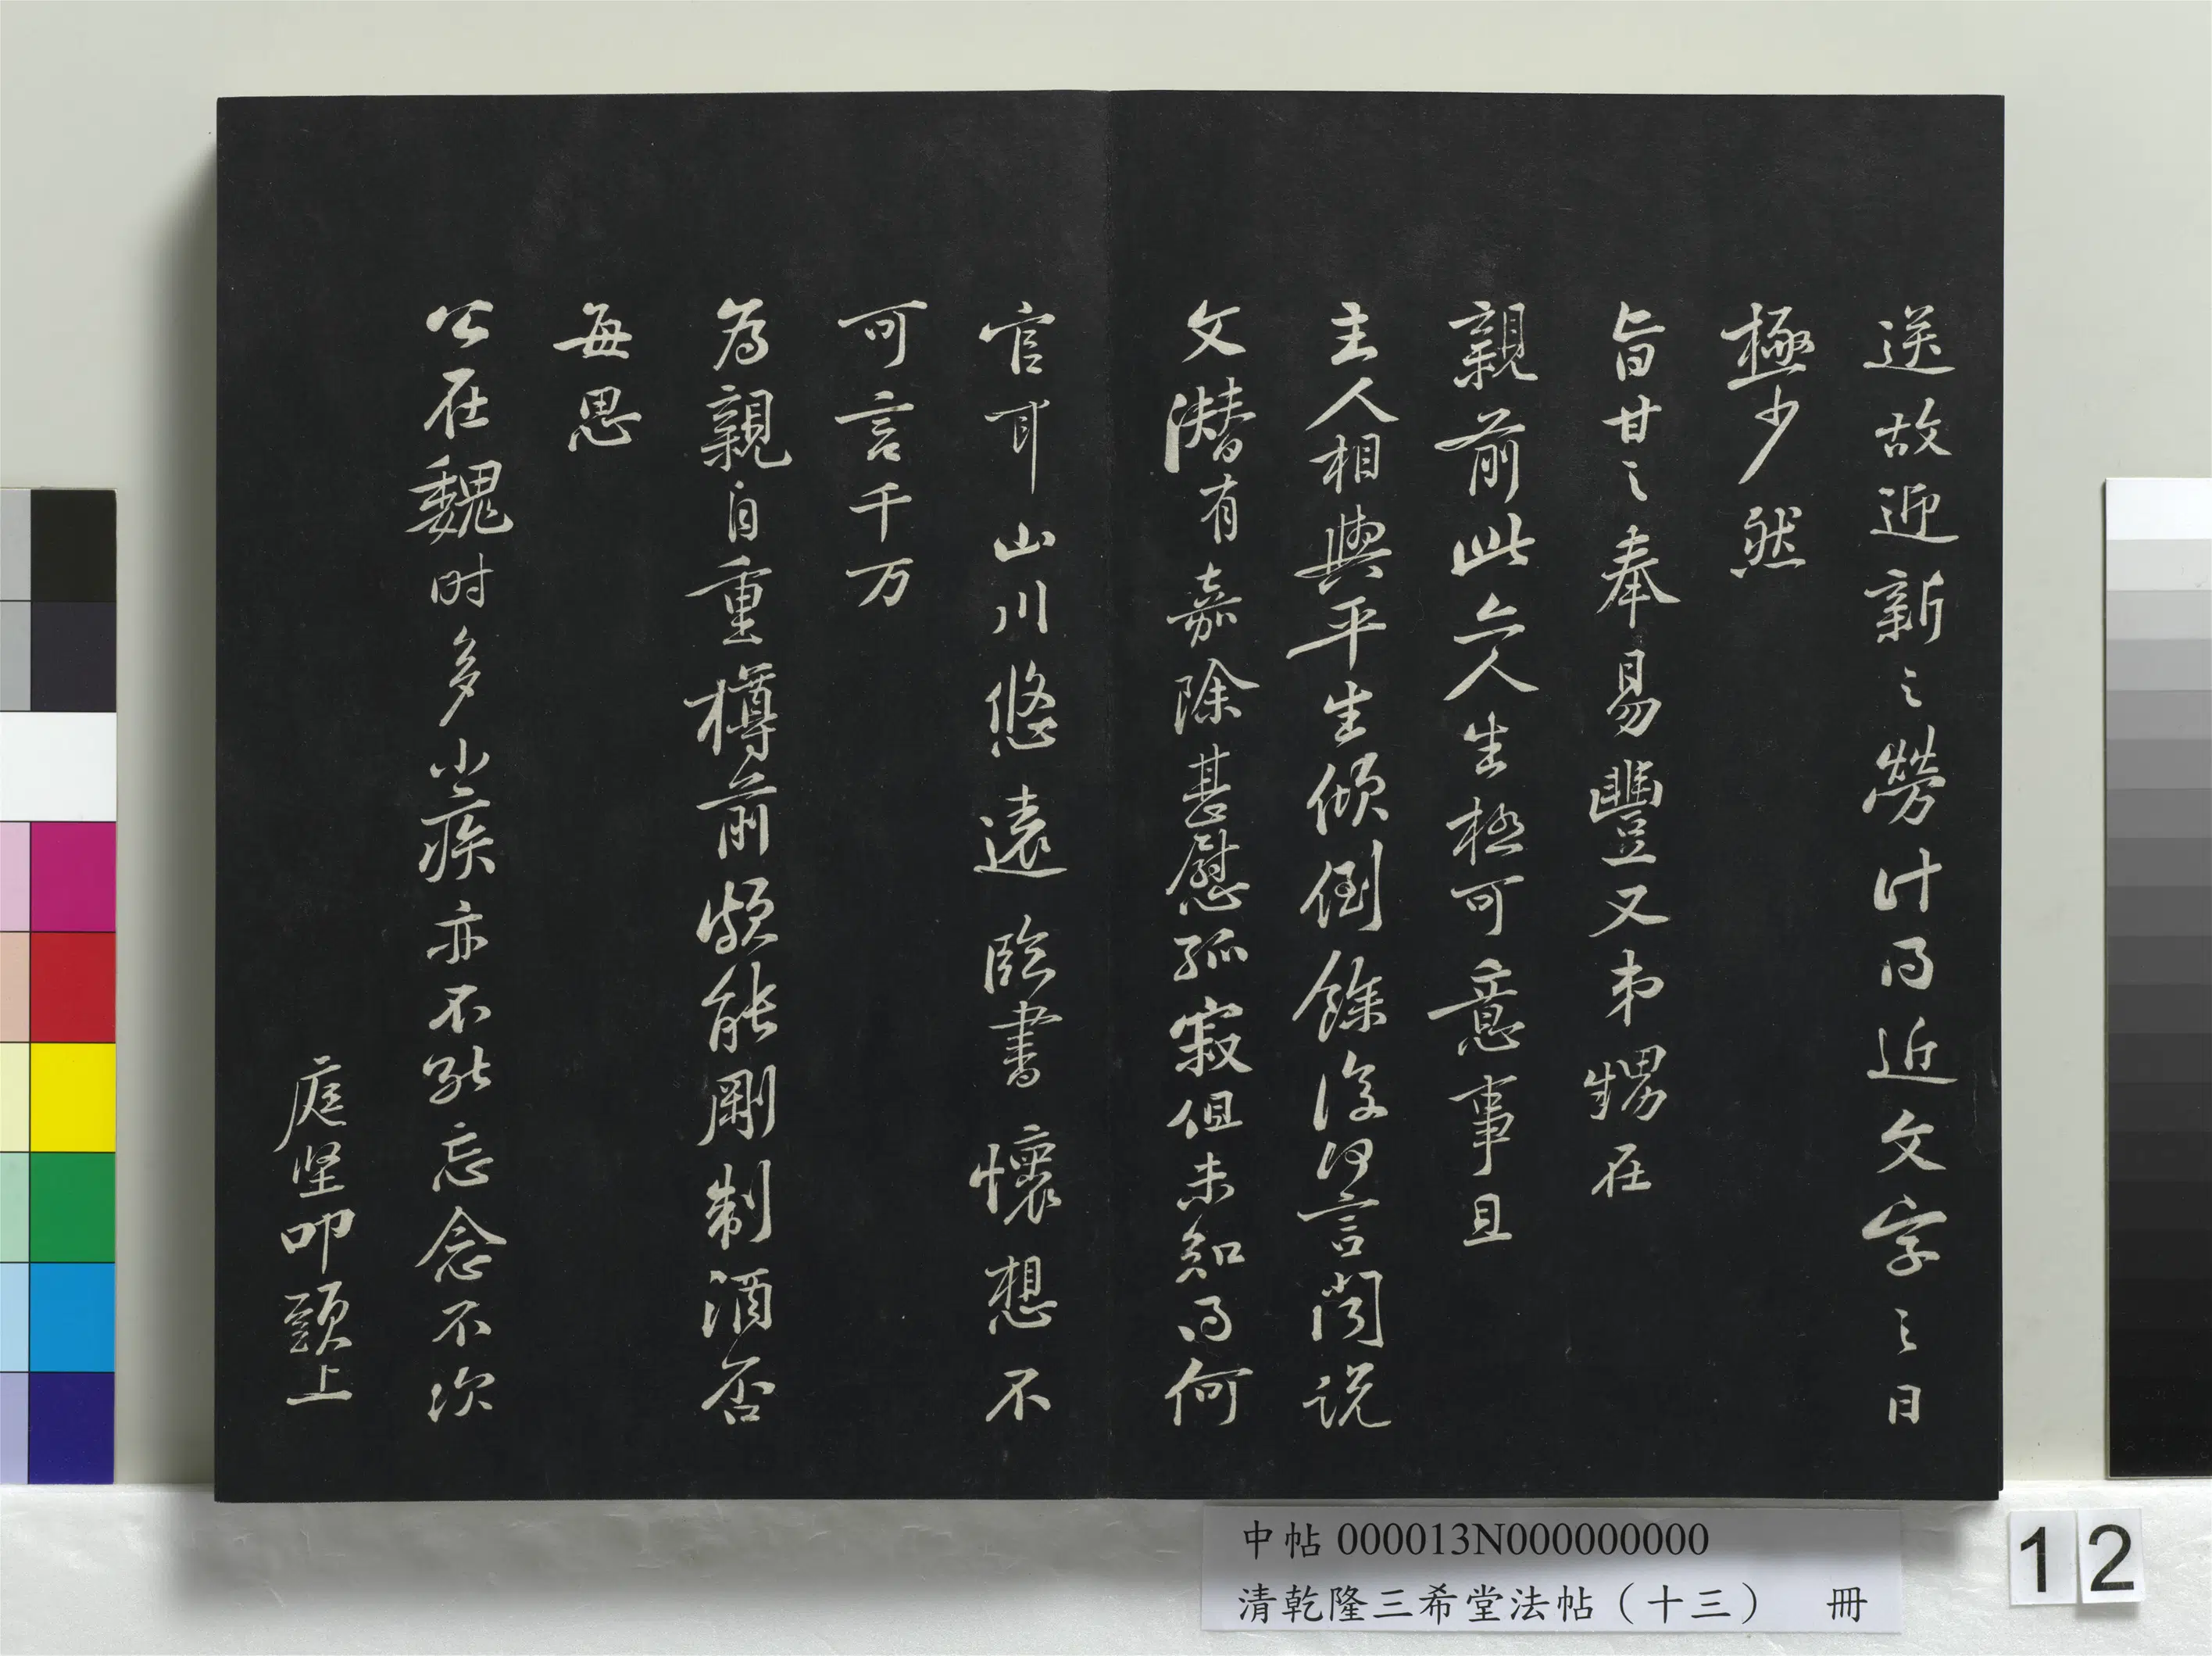 送故迎新之勞計得近文字之日
極少然
旨甘之奉易豐又弟甥在
親前此亦人生極可意事且
主人相與平生傾倒餘復何言聞說
文潛有嘉除甚慰孤寂但未知得何
官耳山川悠遠臨書懷想不
可言千万
為親自重樽前頗能剛制酒否
每思
公在魏时多小疾亦不能忘念不次
庭堅叩頭上
中帖 000013N000000000
清乾隆三希堂法帖（十三） 冊
12